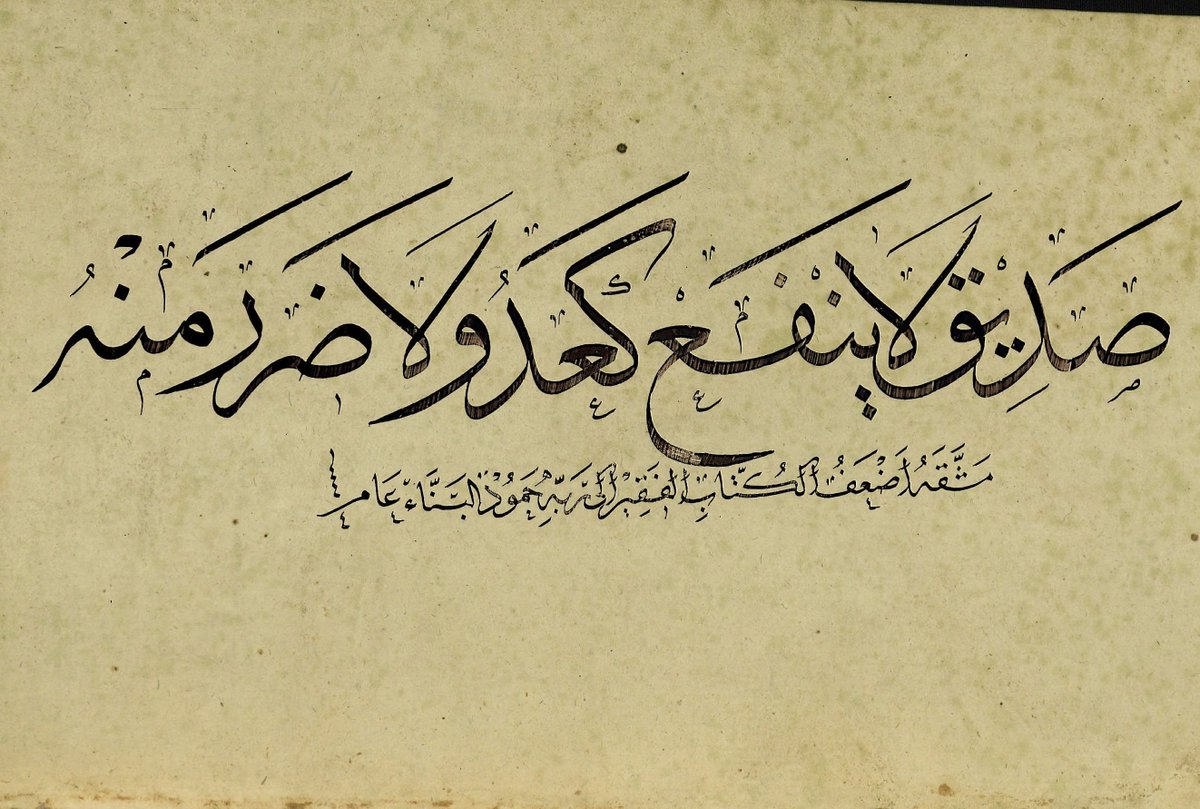 صَدِيق لا ينْفَع كعَدُو ولا ضرر منْهُ
مَشَّقَهُ أَضْعَفُ الكُتَّابِ الفَقِيرُ إلى رَبِّهِ مَحمُودْ البَنَّاء عَام